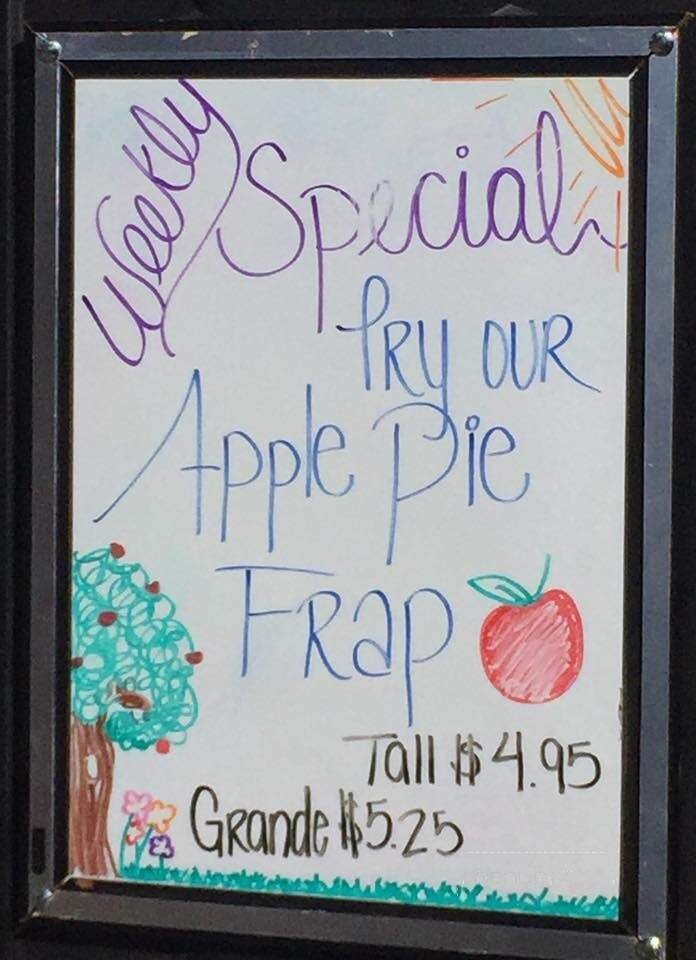 Weekly Special
Try our
Apple Pie
Frap
Tall $4.95
Grande $5.25